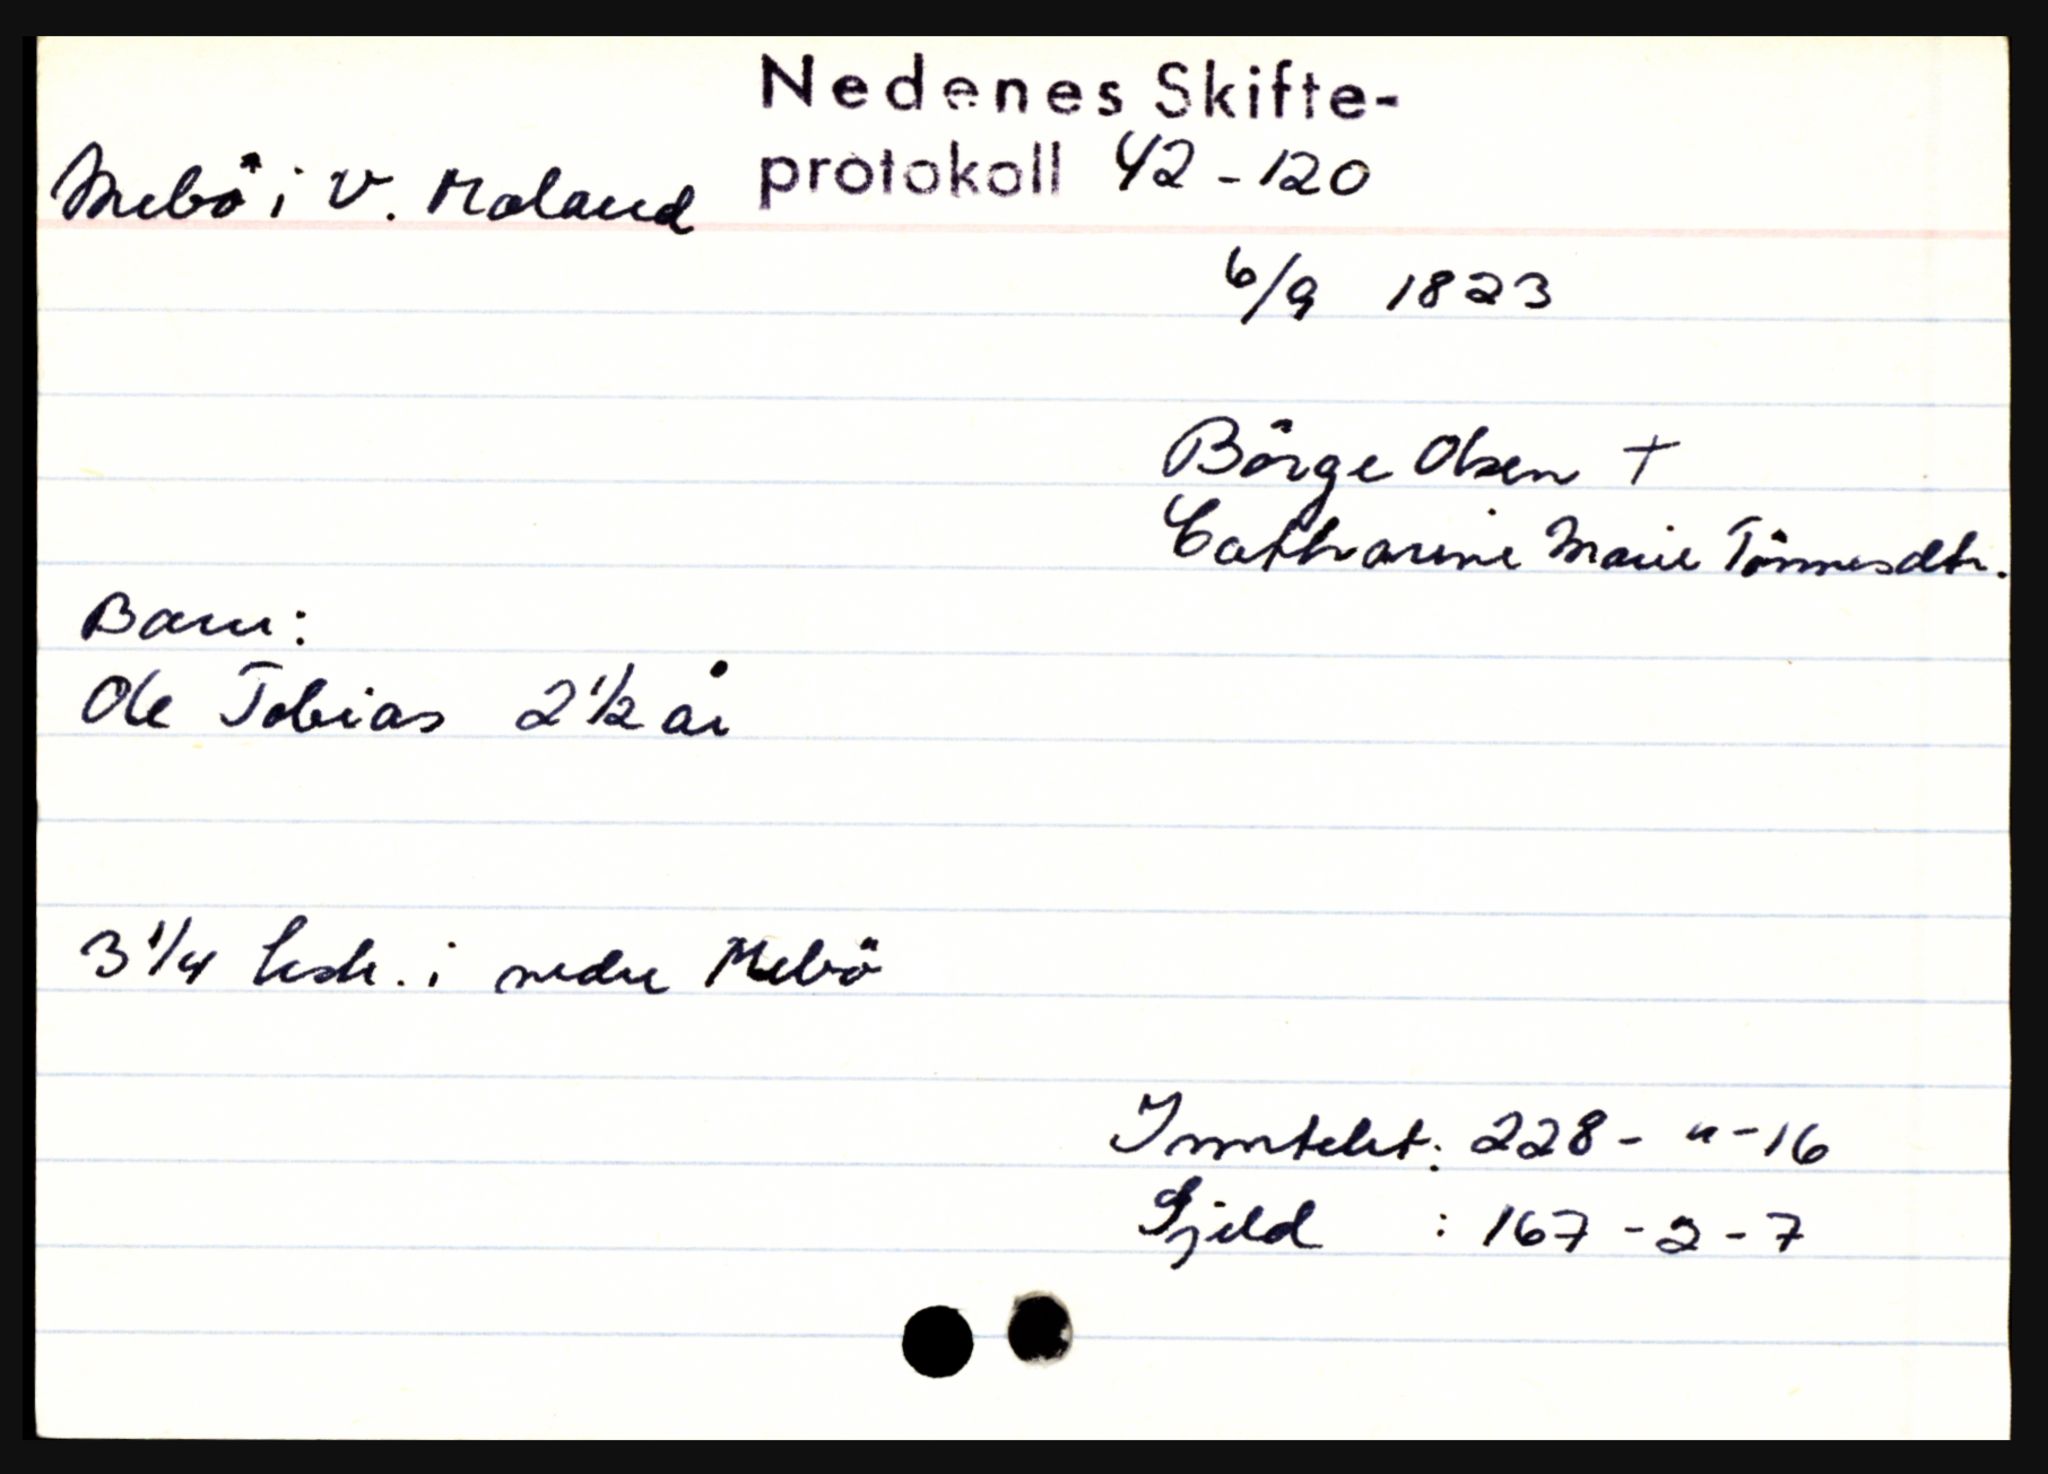 Nedenes Skifte-
protokoll 42-120
Mebö i V. Moland
6/9 1823
Börge Olsen +
Catharine Marie Tönnesdtr.
Barn:
Ole Tobias 2 1/2 år
3 1/4 lsk. i nedre Mebö
Inntekt: 228 - " - 16
Gjeld : 167 - 2 - 7